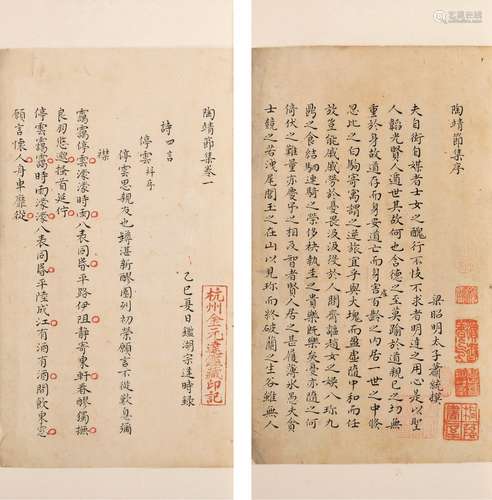 陶靖節集序
梁昭明太子蕭統撰
夫自衒自媒者士女之醜行不忮不求者明達之用心是以聖
人韜光賢人遁世其故何也含德之至莫踰於道親已之切無
重於身故道存而身安道亡而身害百齡之內居一世之中倏
忽比之白駒寄寓謂之逆旅宜乎與大塊而盈虛隨中和而任
放豈能戚戚勞於憂畏汲汲役於人間齊謳趙女之娛八珍九
鼎之食結駟連騎之榮侈袂執圭之貴樂既樂矣憂亦隨之何
倚伏之難量亦慶弔之相及智者賢人居之甚履薄氷愚夫貪
士競之若洩尾閭玉之在山以見珍而終破蘭之生谷雖無人
陶靖節集卷一
詩四言
停雲并序
乙巳夏日鑑湖宗達時錄
停雲思親友也罇湛新醪園列初榮願言不從歎息彌
襟
靄靄停雲濛濛時雨八表同昬平路伊阻靜寄東軒春醪獨撫
良朋悠邈搔首延佇
停雲靄靄時雨濛濛八表同昬平陸成江有酒有酒閒飲東窓
願言懷人舟車靡從
杭州金元達鑑藏印記